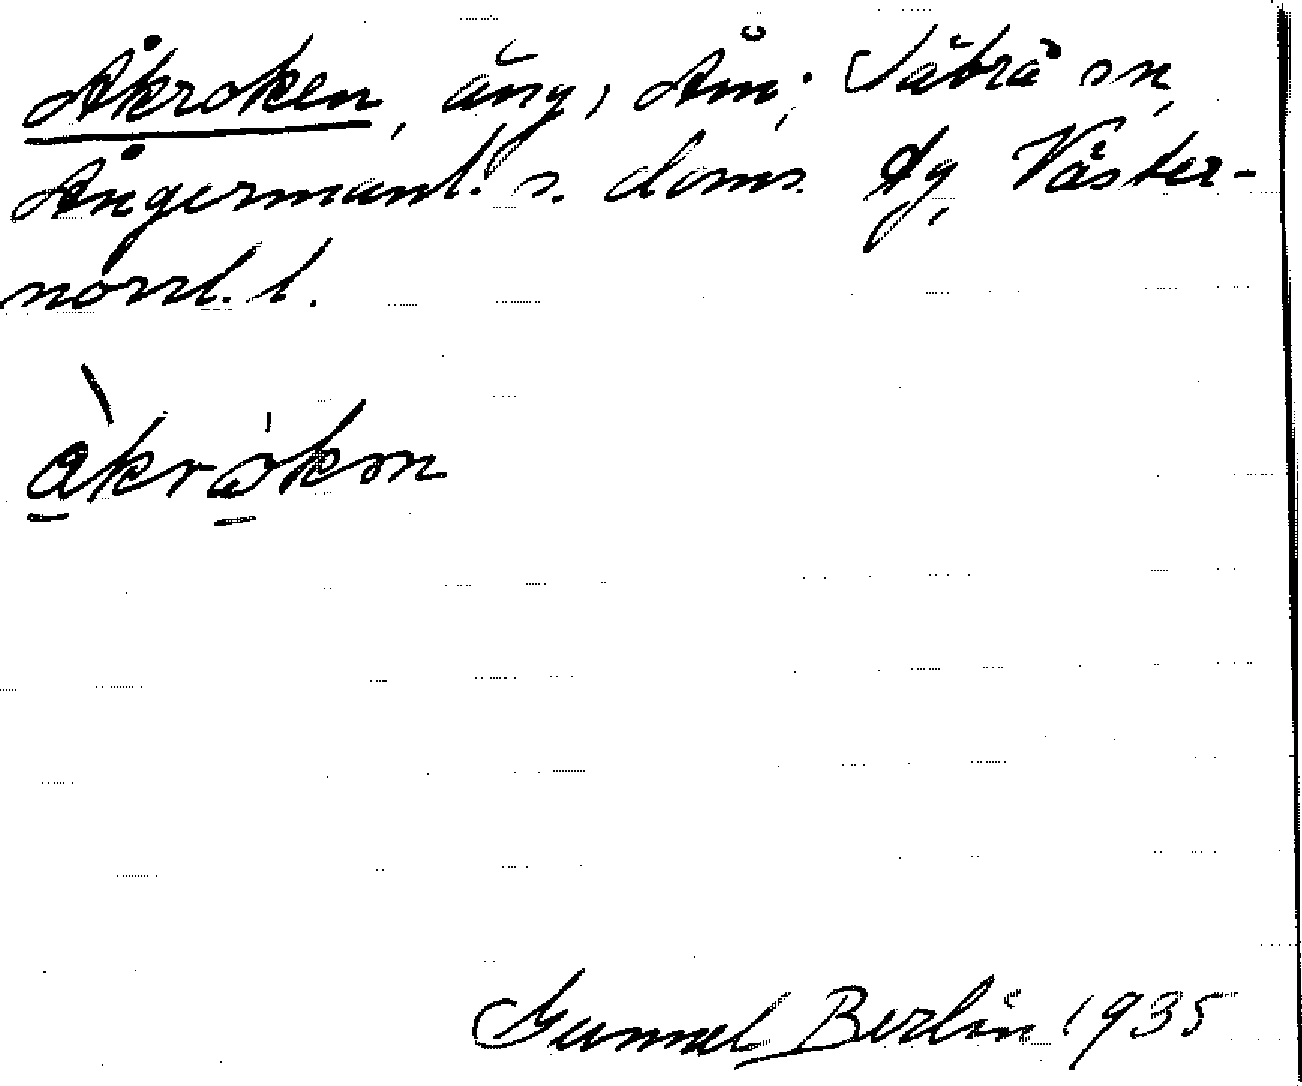 Åkroken, äng, Åm; Säbrå sn,
Ångermanl. s. doms. Åg, Väster-
norrl. l.
àkròkɷn
Gunnel Berlin 1935